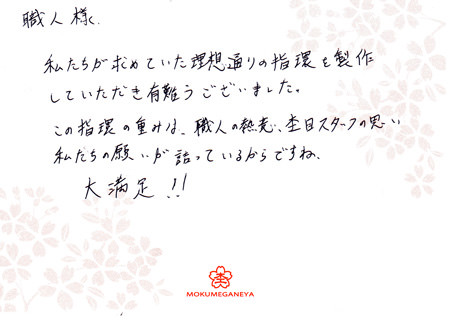 職人様.
私たちが求めていた理想通りの指環を製作
していただき有難うございました。
この指環の重みは、職人の熱意、杢目スタッフの思い
私たちの願いが詰っているからですね。
大満足!!
MOKUMEGANEYA